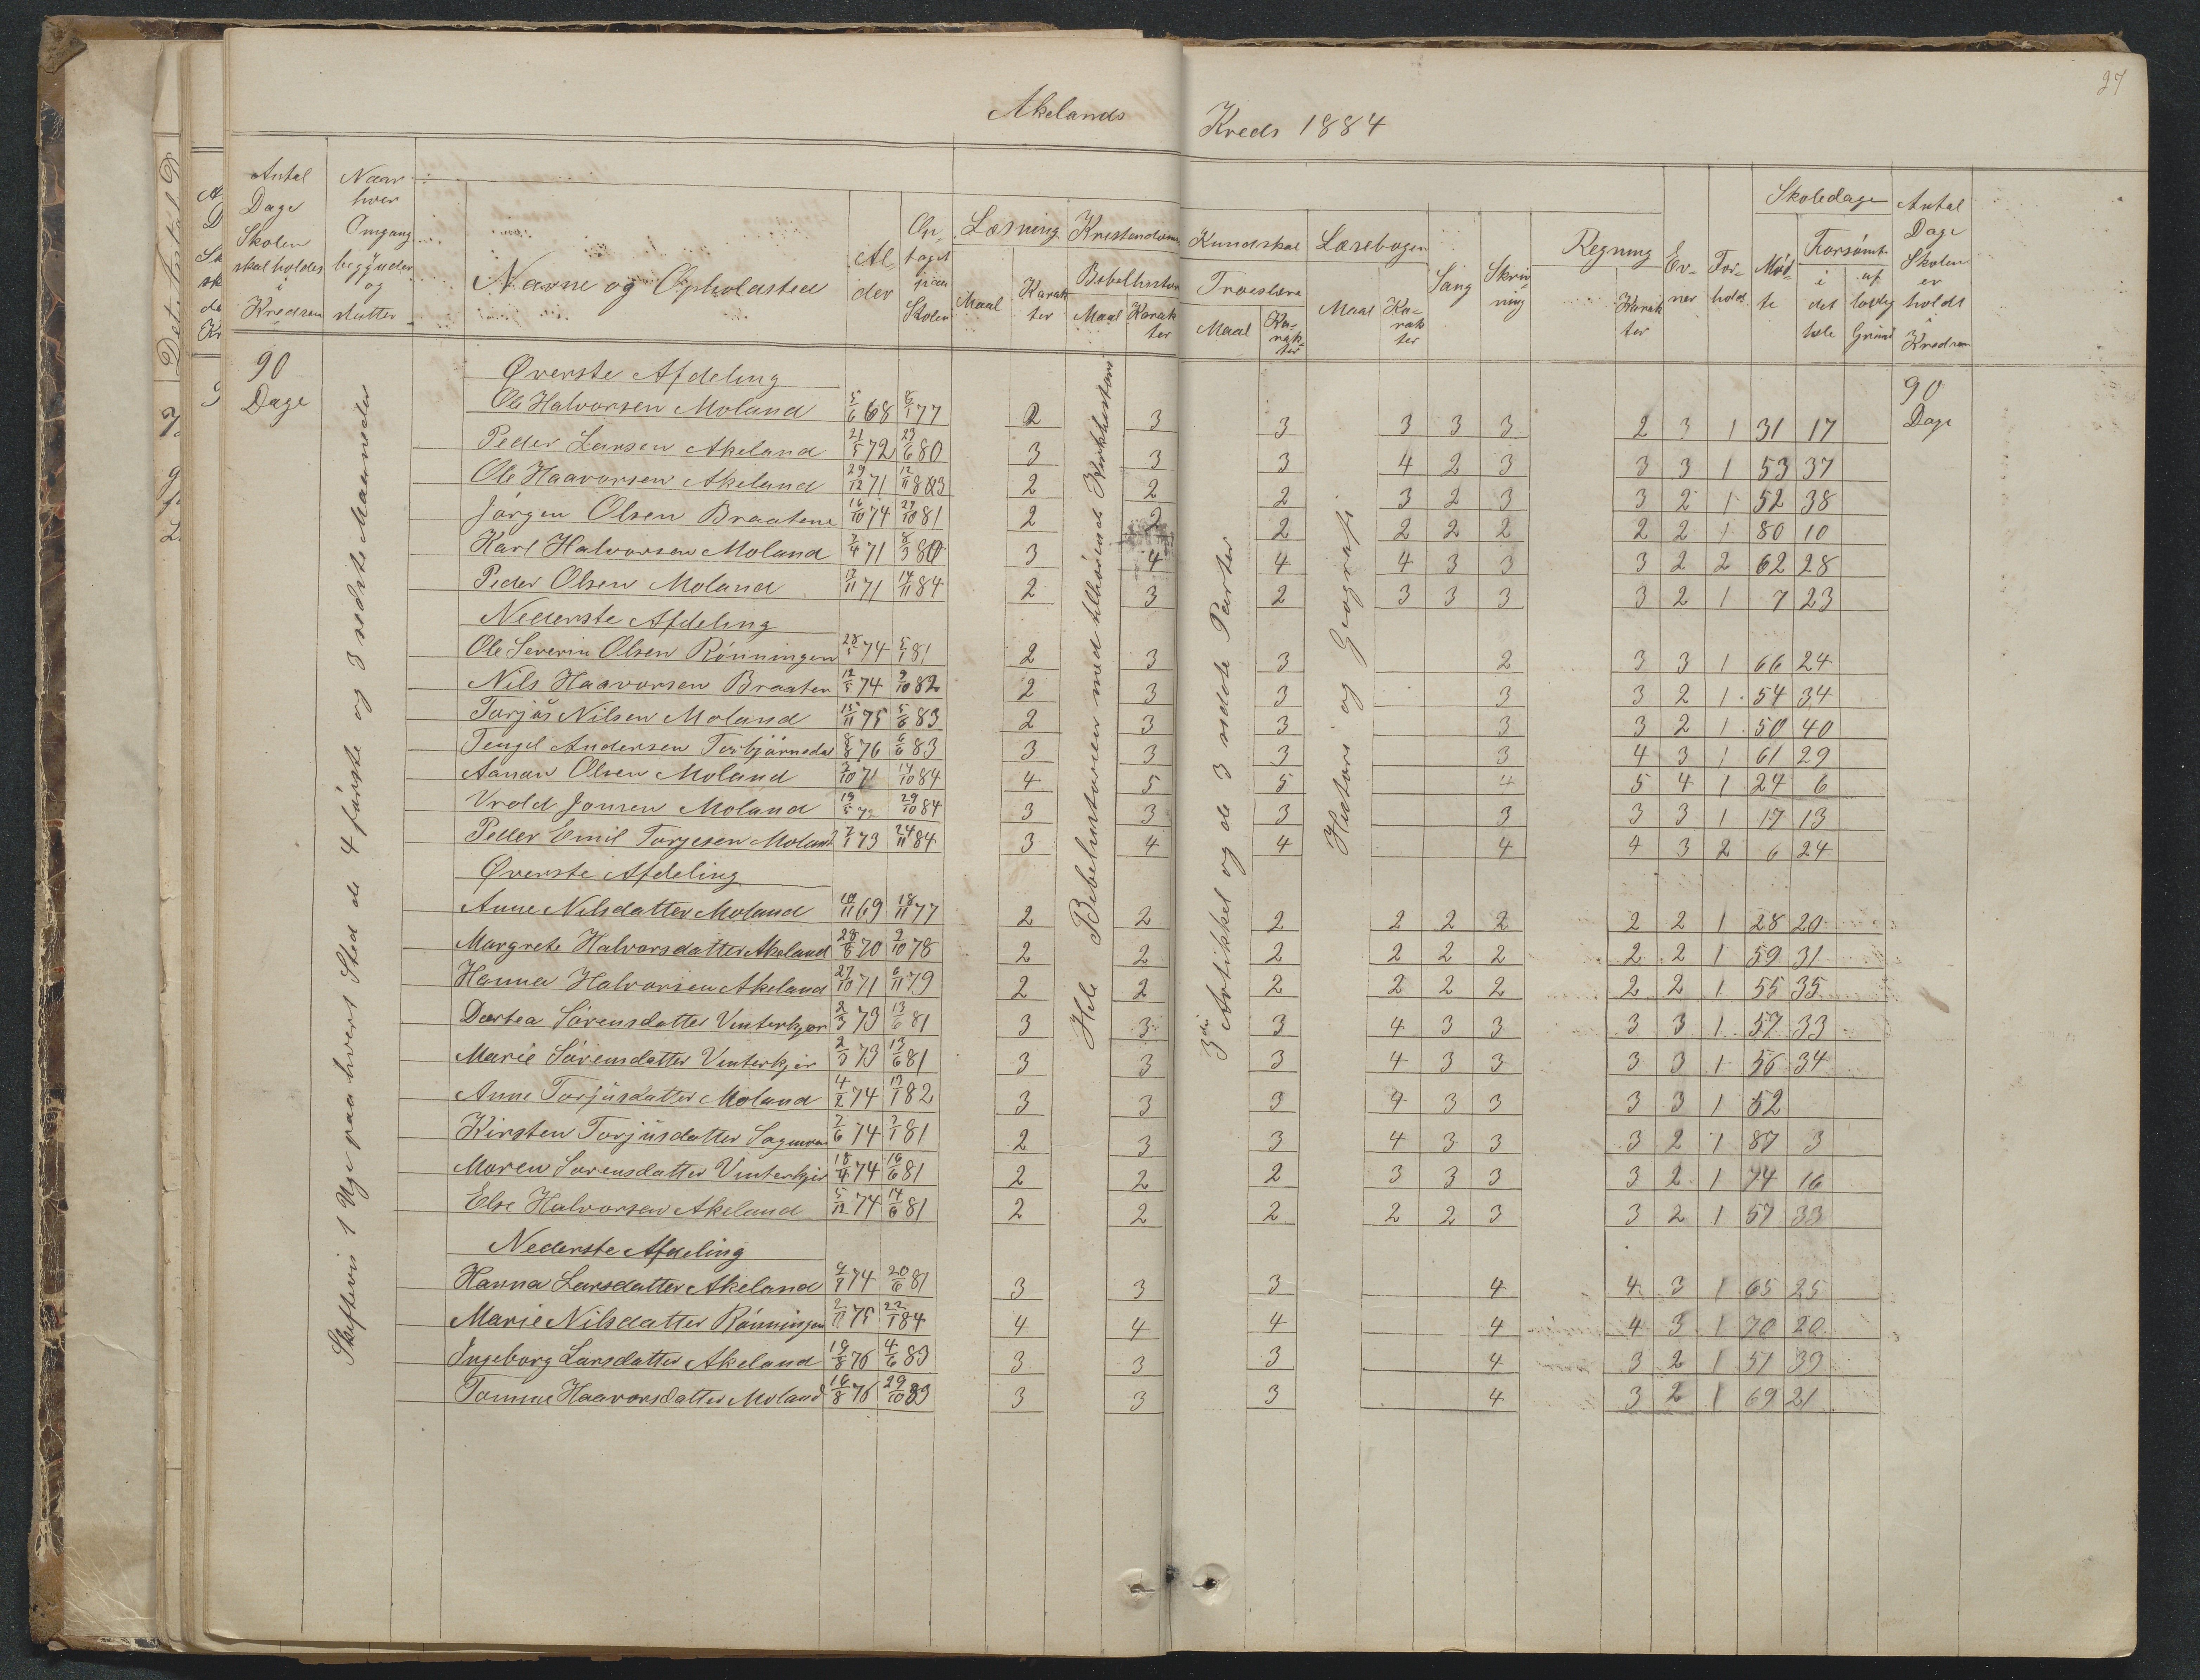 27
Akelands Kreds 1884
Antal Dage Skolen skal holdes i Kredsen
Naar hver Omgang begynder og slutter
Navne og Opholdsted
Alder
Optaget paa Skolen
Læsning Maal Karakter
Kristendoms Kundskab
Bibelhistorie Maal Karakter
Troeslære Maal Karakter
Læsebogen Maal Karakter
Sang
Skrivning
Regning Karakter
Evner
Forhold
Skoledage
Mødte
Forsømt i det hele af lovlig Grund
Antal Dage Skolen er holdt i Kredsen
90 Dage
Skiftevis 1 Uge paa hvert Sted de 4 første og 3 sidste Maaneder
Hele Bibelhistorien med tilhørende Kirkhistorie
3die Artikkel og de 3 sidste Parter
Historie og Geografi
90 Dage
Øverste Afdeling
Ole Halvorsen Moland 5/6 68 5/1 77 2 3 3 3 3 3 2 3 1 31 17
Peder Larsen Akeland 21/5 72 23/6 80 3 3 3 4 2 3 3 3 1 53 37
Ole Haavorsen Akeland 29/12 71 12/11 83 2 2 2 3 2 3 3 2 1 52 38
Jørgen Olsen Braatene 16/10 74 27/10 81 2 2 2 2 2 2 2 2 1 80 10
Karl Halvorsen Moland 7/4 71 8/3 80 3 4 4 4 3 3 3 2 2 62 28
Peder Olsen Moland 17/11 71 14/11 84 2 3 2 3 3 3 3 2 1 7 23
Nederste Afdeling
Ole Severin Olsen Rønningen 28/1 74 5/1 81 2 3 3 2 3 3 1 66 24
Nils Haavorsen Braaten 12/5 74 9/10 82 2 3 3 3 3 2 1 54 34
Torjus Nilsen Moland 15/11 75 5/6 83 2 3 3 3 3 2 1 50 40
Tengel Andersen Torbjørnsdal 8/8 76 6/6 83 3 3 3 3 4 3 1 61 29
Aanan Olsen Moland 7/10 71 14/10 84 4 5 5 4 5 4 1 24 6
Vrold Jonsen Moland 19/5 72 29/10 84 3 3 3 3 3 3 1 17 13
Peder Emil Torjesen Moland 7/1 73 24/11 84 3 4 4 4 4 3 2 6 24
Øverste Afdeling
Anne Nilsdatter Moland 10/11 69 18/11 77 2 2 2 2 2 2 2 2 1 28 20
Margrete Halvorsdatter Akeland 28/8 70 9/10 78 2 2 2 2 2 2 2 2 1 59 31
Hanna Halvorsen Akeland 27/10 71 6/11 79 2 2 2 2 2 2 2 2 1 55 35
Dortea Sørensdatter Vinterkjær 2/3 73 13/6 81 3 3 3 4 3 3 3 3 1 57 33
Marie Sørensdatter Vinterkjer 2/3 73 13/6 81 3 3 3 4 3 3 3 3 1 56 34
Anne Torjusdatter Moland 4/2 74 13/1 82 3 3 3 4 3 3 3 3 1 52
Kirsten Torjusdatter 7/6 74 7/1 81 2 3 3 4 3 3 3 2 1 87 3
Maren Sørensdatter Vinterkjer 18/4 74 16/6 81 2 2 2 3 3 3 3 2 1 74 16
Else Halvorsen Akeland 5/12 74 14/6 81 2 2 2 2 2 3 3 2 1 57 33
Nederste Afdeling
Hanna Larsdatter Akeland 9/1 74 20/6 81 3 3 3 4 4 3 1 65 25
Marie Nilsdatter Rønningen 2/11 75 22/1 84 4 4 4 4 4 3 1 70 20
Ingeborg Larsdatter Akeland 19/8 76 4/6 83 3 3 3 4 3 2 1 51 39
Tomine Haavorsdatter Moland 16/8 76 29/10 83 3 3 3 4 3 2 1 69 21